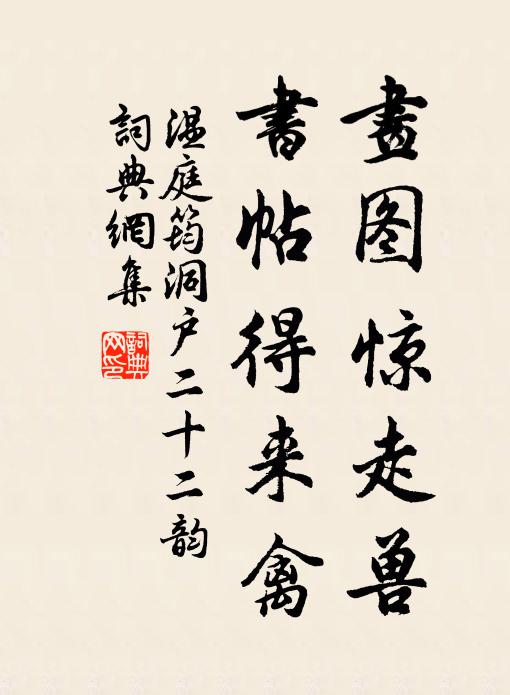 畫图惊走兽
書帖得来禽
温庭筠洞户二十二韵
詞典網集
詞典网印